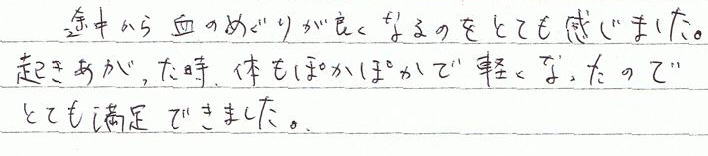 途中から血のめぐりが良くなるのをとても感じました。
起きあがった時、体もぽかぽかで軽くなったので
とても満足できました。